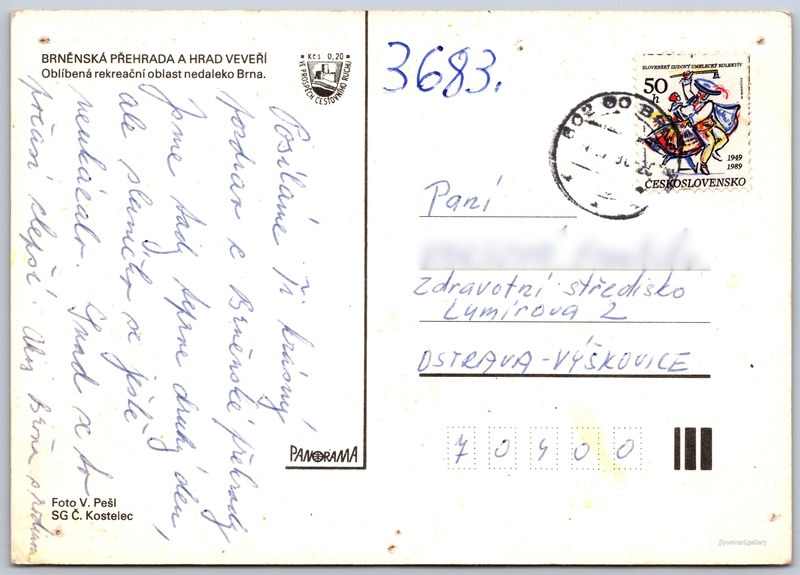 BRNĚNSKÁ PŘEHRADA A HRAD VEVEŘÍ
Oblíbená rekreační oblast nedaleko Brna.
Kčs 0,20
VE PROSPĚCH CESTOVNÍHO RUCHU
3683.
SLOVENSKÝ ĽUDOVÝ UMELECKÝ KOLEKTÍV
50 h
1949
1989
ČESKOSLOVENSKO
602 00 BRNO
Posíláme Ti krásný
pozdrav z Brněnské přehrady
Jsme tady teprve druhý den,
ale sluníčko se ještě
neukázalo. Snad se to
počasí zlepší.
Paní
Zdravotní středisko
Lumírova 2
OSTRAVA-VÝŠKOVICE
70400
PANORAMA
Foto V. Pešl
SG Č. Kostelec